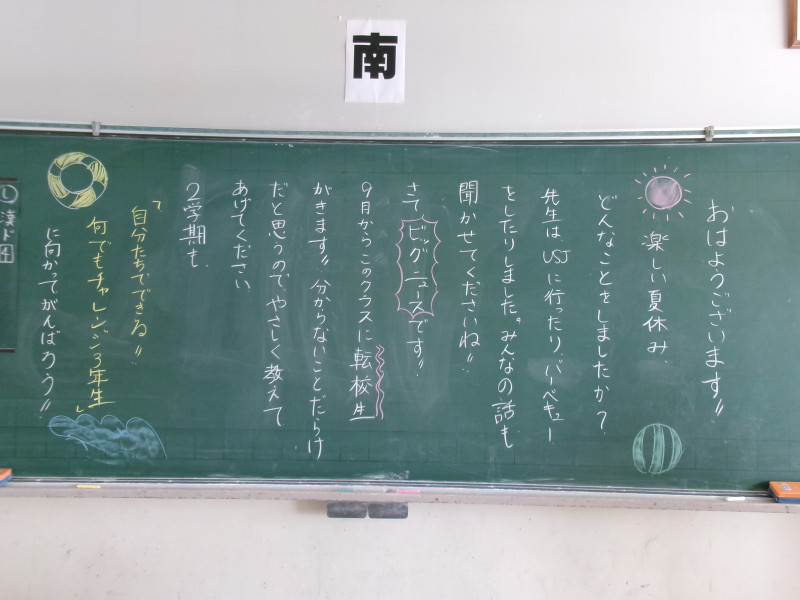 南
おはようございます!!
楽しい夏休み
どんなことをしましたか?
先生は、USJに行ったり、バーベキュー
をしたりしました。みんなの話も
聞かせてくださいね!!
さて、ビッグニュースです!!
9月からこのクラスに転校生
がきます!!分からないことだらけ
だと思うので、やさしく教えて
あげてください
2学期も、
「自分たちでできる!!
何でもチャレンジ3年生」
に向かってがんばろう!!